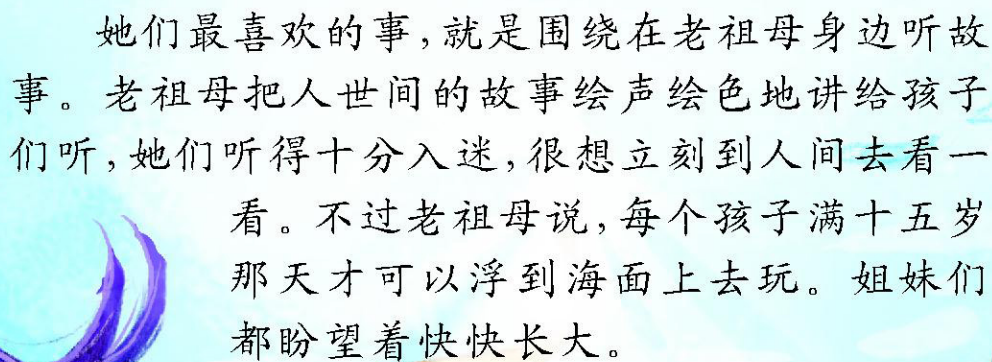 她们最喜欢的事,就是围绕在老祖母身边听故
事。老祖母把人世间的故事绘声绘色地讲给孩子
们听,她们听得十分入迷,很想立刻到人间去看一
看。不过老祖母说,每个孩子满十五岁
那天才可以浮到海面上去玩。姐妹们
都盼望着快快长大。